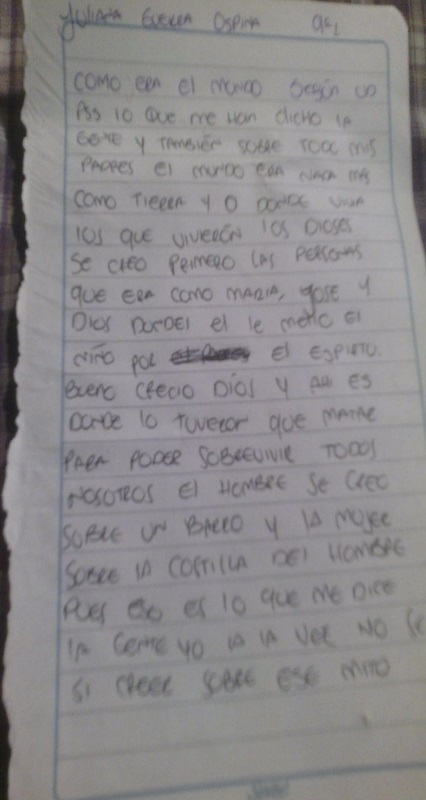 Yuliana Guerra Ospina 9c1
COMO ERA El MUNDO SEGÚN UD
PSS lO QUE ME HAN dICHO lA
GENTE Y TAMBIÉN SOBRE TODO MIS
PADRES El MUNDO ERA NADA MÁS
COMO TIERRA Y O DONDE VIVIA
lOS QUE VIVERÓN lOS DIOSES
SE CREO PRIMERO LAS PERSONAS
QUE ERA COMO MARIA, JOSE Y
DIOS DONDEI El lE METIO El
NIÑO POR El ESPIRITO.
BUENO CRECIO DÍOS Y AHI ES
DONDE lO TUVERON QUE MATAR
PARA PODER SOBREVIVIR TODOS
NOSOTROS El HOMBRE SE CREO
SOBRE UN BARRO Y lA MUJER
SOBRE lA COSTILLA DEl HOMBRE
PUES ESO ES lO QUE ME DICE
lA GENTE YO lA lA VER NO SE
SI CREER SOBRE ESE MITO